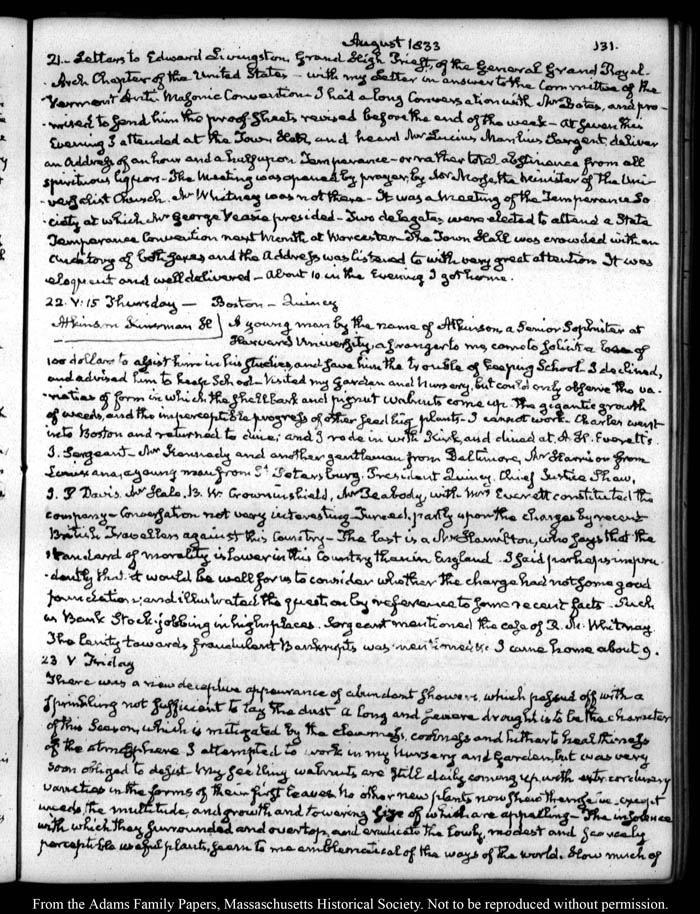 August 1833
131.
21.- Letters to Edward Livingston, Grand High Priest, of the General Grand Royal
Arch Chapter of the United States - with my Letter in answer to the Committee of the
Vermont Anti Masonic Convention - I had a long Conversation with Mr Bates, and pro-
mised to send him the proof sheets revised before the end of the week - At seven this
Evening I attended at the Town Hall, and heard Mr Lucius Manlius Sargent, deliver
an Address of an hour and a half upon Temperance - or rather total abstinence from all
spirituous liquor - The Meeting was opened by prayer, by Mr Morse the Minister of the Uni-
versalist Church. Mr Whitney was not there - It was a Meeting of the Temperance So-
ciety at which Mr George Veazie presided - Two delegates were elected to attend a State
Temperance Convention next Month at Worcester. The Town Hall was crowded with an
auditory of both sexes and the Address was listened to with very great attention It was
eloquent and well delivered - About 10 in the Evening I got home.
22. V:15 Thursday - Boston - Quincy
Atkinson Kinsman H } A young man by the name of Atkinson, a Senior Sophister at
Harvard University, a stranger to me, came to solicit a loan of
100 dollars to assist him in his studies, and save him the trouble of keeping School. I declined,
and advised him to keep School - Visited my Garden and Nursery, but could only observe the va-
rieties of form in which the shellbark and pignut walnuts come up. The gigantic growth
of weeds, and the imperceptible progress of other seedling plants - I cannot work. Charles went
into Boston and returned to dine; and I rode in with Kirk, and dined at A. H. Everett's
T. Sergeant - Mr Kennedy and another gentleman from Baltimore, Mr Harrison from
Louisiana, a young man from St. Petersburg, President Quincy, Chief Justice Shaw,
J. P Davis, Mr Hale, B. W. Crowninshield, Mr Peabody, with Mrs Everett constituted the
company - Conversation not very interesting. Turned, partly upon the charges by recent
British Travellers against this Country - The last is a Mr Hamilton, who says that the
standard of morality is lower in this Country than in England. I said perhaps impru-
dently that it would be well for us to consider whether the charge had not some good
foundation; and illustrated the question by reference to some recent facts. Such
as Bank Stock-jobbing in high places. Sergeant mentioned the case of R. M. Whitney
The lenity towards fraudulent Bankrupts was mentioned. I came home about 9.
23 V Friday
There was a new deceptive appearance of abundant showers, which passed off with a
sprinkling not sufficient to lay the dust A long and severe drought is to be the character
of this Season, which is mitigated by the clearness, coolness and hitherto healthiness
of the atmosphere I attempted to work in my Nursery and Garden, but was very
soon obliged to desist - My seedling walnuts are still daily coming up, with extraordinary
varieties in the forms of their first leaves No other new plants now shew themselves, except
weeds the multitude, and growth and towering size of which are appalling - The insolence
with which they surround and overtop, and eradicate the lowly, modest and scarcely
perceptible useful plants, seem to me emblematical of the ways of the world. How much of
From the Adams Family Papers, Massachusetts Historical Society. Not to be reproduced without permission.